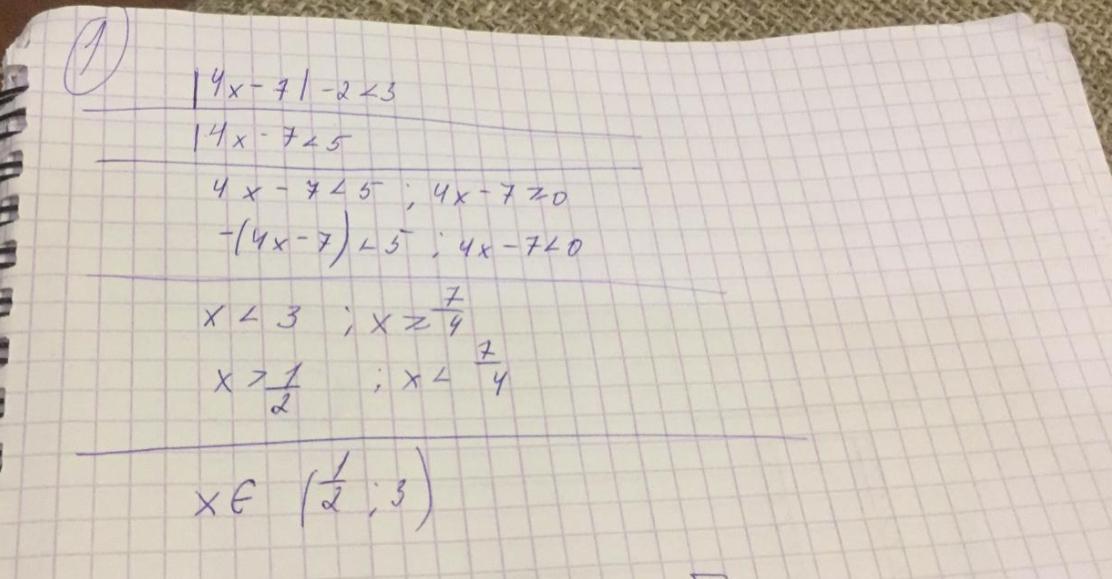 1
|4x - 7| - 2 < 3
|4x - 7 < 5
4x - 7 < 5 ; 4x - 7 ≥ 0
-(4x - 7) < 5 ; 4x - 7 < 0
x < 3 ; x ≥ 7/4
x > 1/2 ; x < 7/4
x ∈ (1/2 ; 3)